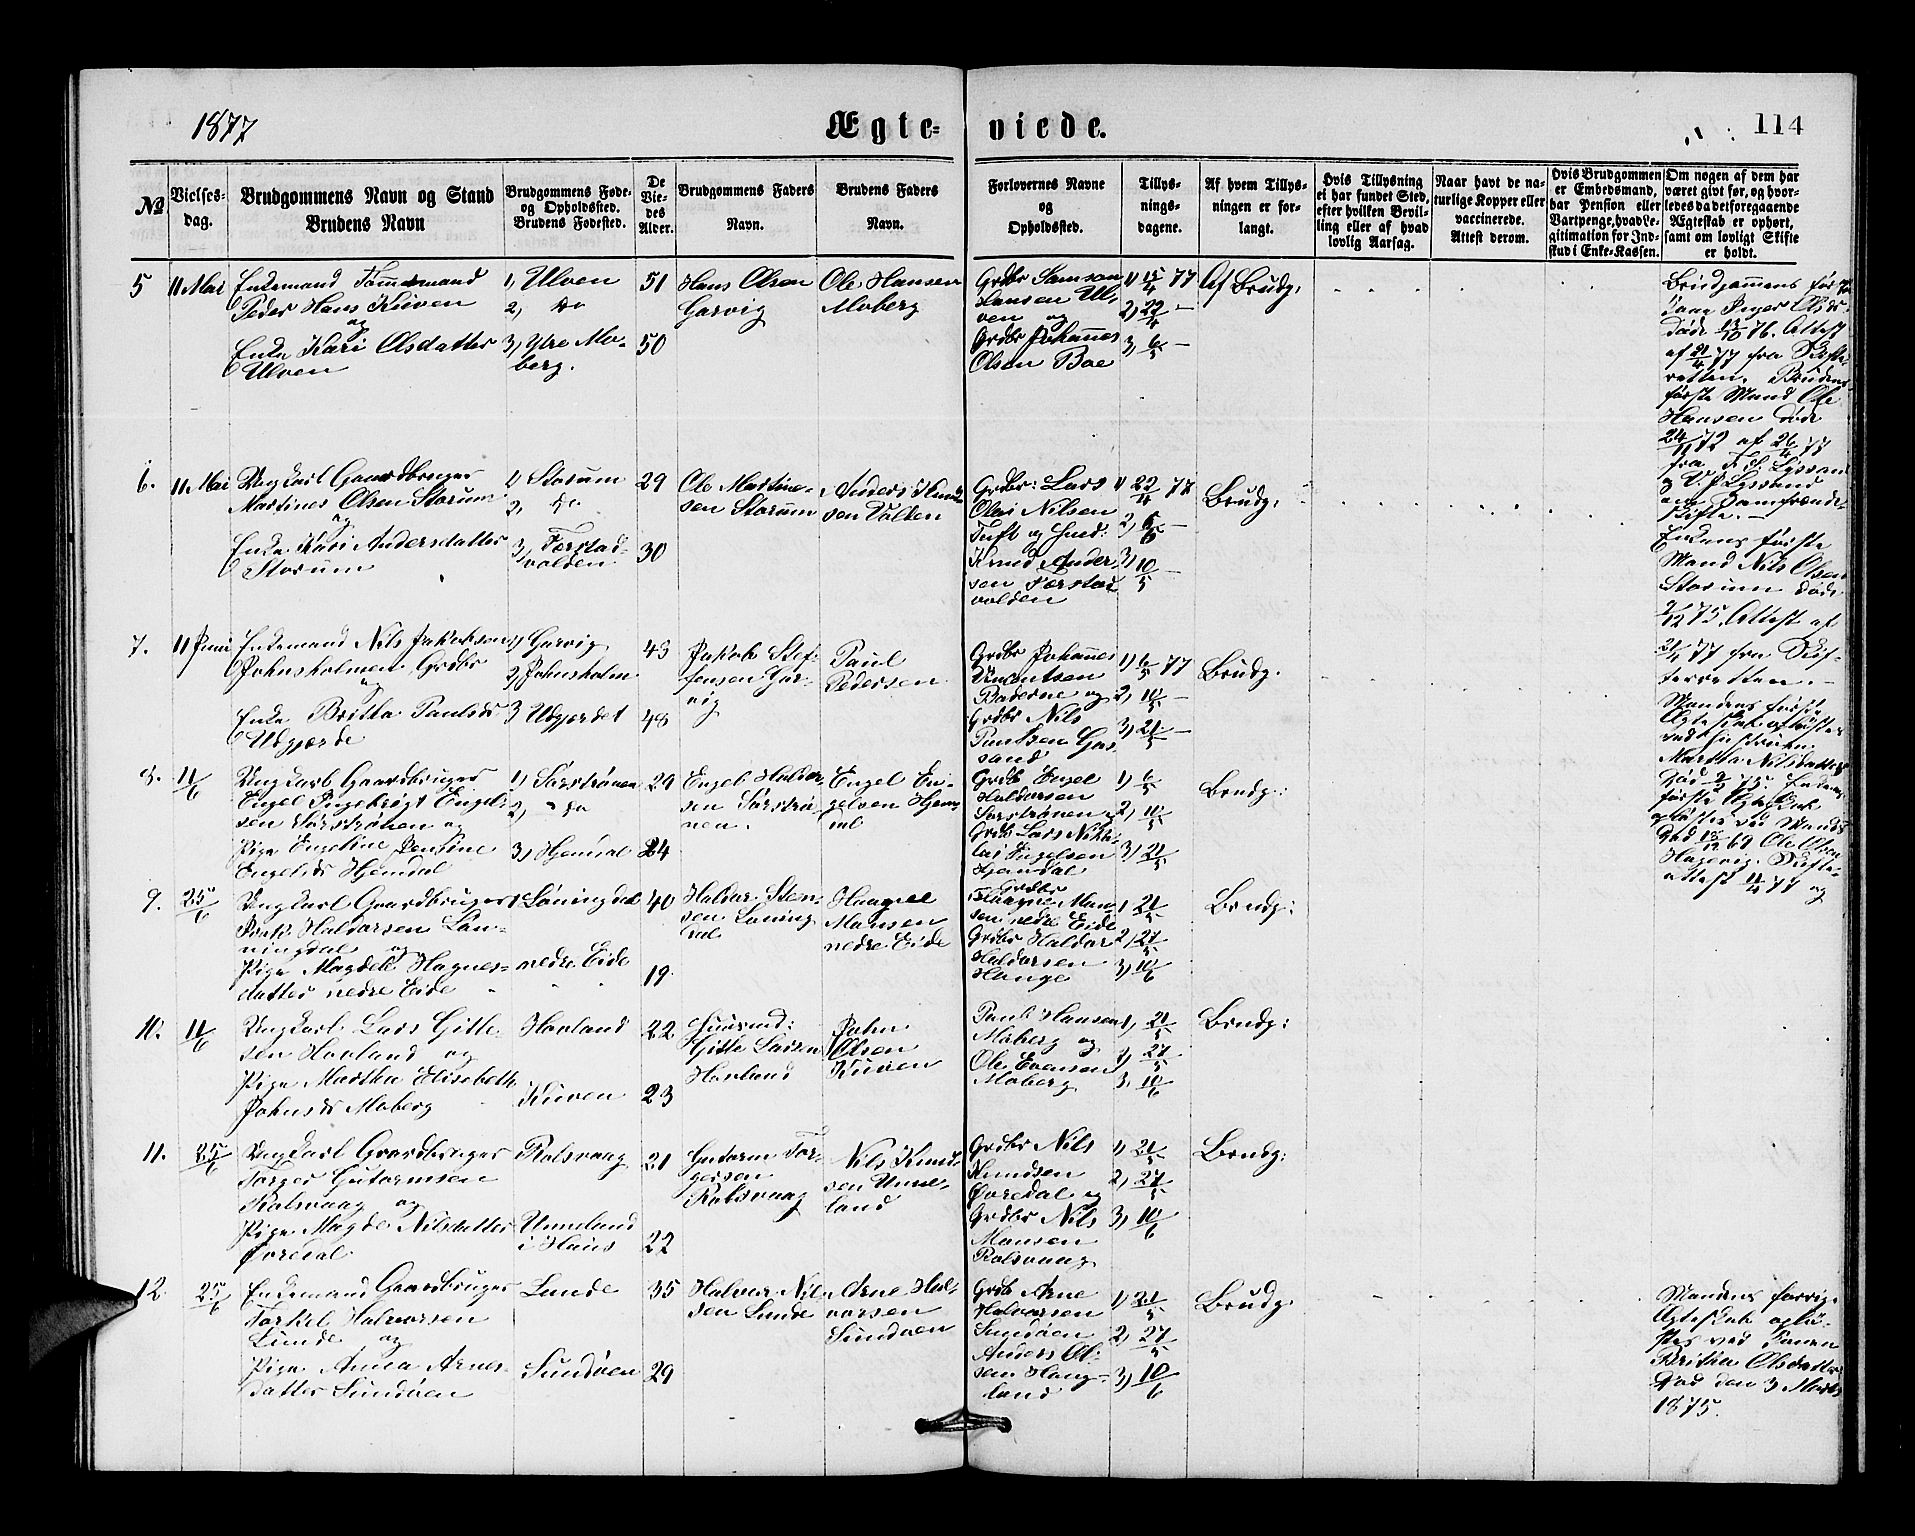 1877
Ægte-viede.
114
№
Vielses-
dag.
Brudgommens Navn og Stand
Brudens Navn
Brudgommens Føde-
og Opholdssted.
Brudens Fødested.
De
Vie-
des
Alder.
Brudgommens Faders
Navn.
Brudens Faders
Navn.
Forlovernes Navne
og
Opholdssted.
Tillys-
nings-
dagene.
Af hvem Tillys-
ningen er for-
langt.
Hvis Tillysning
ei har fundet Sted,
efter hvilken Bevil-
ling eller af hvad
lovlig Aarsag.
Naar havt de na-
turlige Kopper eller
vaccinerede.
Attest derom.
Hvis Brudgommen
er Embedsmand,
har Pension eller
Vartpenge, hvad Le-
gitimation for Ind-
skud i Enke-Kassen.
Om nogen af dem har
været gift før, og hvor-
ledes da det foregaaende
Ægteskab er ophørt,
samt om lovligt Skifte
er holdt.
5
11 Mai
Enkemand Tømmermand
Peder Hans Kuven
og
Enke Kari Olsdatter
Ulven
1, Ulven
2, do
3, Ytre Mo-
berg.
51
50
Hans Olsen
Garvig
Ole Hansen
Moberg
Grdbr Samson
Hansen Ul-
ven og
Grdbr Johannes
Olsen Boe
1) 15/4 77
2) 22/4 —
3) 6/5 —
Af Brudg.
Brudgommens før
Kone Inger Olsds
døde 13/10 76. Attest
af 21/4 77 fra Skifte-
retten. Brudens
første Mand Ole
Hansen døde
24/11 72 af 26/4 77
6.
11 Mai
Ungkarl Gaardbruger
Martines Olsen Storum
og
Enke Kari Andersdatter
Storum
1) Storum
2, do
3, Tørstad-
volden
29
30
Ole Martine-
sen Storum
Anders Knud-
sen Valken
Grdbr: Lars
Olai Nilsen
Tuft og Husd:
Knud Ander-
sen Tørstad
volden
1) 22/4 77
2, 6/5 —
3) 10/5 —
Brudg.
Enkens første
Mand Nils Olsen
Storum døde
9/12 75. Attest af
21/4 77 fra Skif-
teretten. —
7.
11 Juni
Enkemand Nils Jakobsen
Johnsholmen Grdbr
og
Enke Britha Paulsds
Udgjærde
1) Garvig
2, Johnsholm
3 Udgjerdet
43
48
Jakob Stef-
fensen Gar-
vig
Paul
Pedersen
Grdbr Johannes
Vincentsen
Baderne og
Grdbr Nils
Paulsen Gas-
sand
1) 6/5 77
2, 10/5 —
3) 21/5 —
Brudg.
Mandens første
Ægteskab opløstes
ved Hustruen
Martha Nilsdatters
Død 2/2 75. Enkens
første Ægteskab
opløstes ved Mands
Død 18/12 69 Ole Olsen
Hagevig. Skifte-
attest 11/4 77 og
8.
11/6
Ungkarl Gaardbruger
Engel Ingebrigt Engel-
sen Sørstrønen og
Pige Engeline Jensine
Engelsds Hjemdal
1) Sørstrønen
2, do
3) Hjemdal
29
24
Engel Haldor-
sen Sørstrø-
nen.
Engel En-
gelsen Hjem-
dal
Grdb Engel
Haldorsen
Sørstrønen og
Grdb Lars Niko-
lai Engelsen
Hjemdal
1) 6/5
2, 10/5
3) 21/5
Brudg:
9.
25/6
Ungkarl Gaardbruger
Haldorsen Løn-
ningdal og
Pige Magdeli Hagnes-
datter nedre Eide
Løningdal
nedre Eide
40
19
Haldor Sten-
sen Løning-
dal
Haagne
Monsen
nedre Eide
Grdbr
Haagne Mon-
sen nedre Eide
Grdbr Haldor
Haldorsen
Hauge
1 21/5
2) 27/5
3) 10/6
Brudg:
10.
11/6
Ungkarl Lars Gitle-
sen Hovland og
Pige Martha Elisabeth
Johnsds Moberg
Hovland
Kuven
22
23
Huusmd:
Gitle Larsen
Hovland
John
Olsen
Kuven
Paul Hansen
Moberg og
Ole Evensen
Moberg
1, 21/5
2, 27/5
3, 10/6
Brudg:
11.
25/6
Ungkarl Gaardbruger
Torger Gutormsen
Rolsvaag og
Pige Magde Nilsdatter
Øvredal
Rolsvaag
Unneland
i Haus
21
22
Gutorm Tor-
gersen
Rolsvaag
Nils Knud-
sen Unne-
land
Grdbr Nils
Knudsen
Øvredal og
Grdbr Nils
Monsen
Rolsvaag
1) 21/5
2, 27/5
3, 10/6
Brudg:
12
25/6
Enkemand Gaardbruger
Torkel Halvorsen
Lunde og
Pige Anna Arnes-
datter Sundøen
Lunde
Sundøen
35
29
Halvor Nil-
sen Lunde
Arne Hal-
vorsen
Sundøen
Grdb Arne
Halvorsen
Sundøen
Anders Ol-
sen Haug-
land
1) 21/5
2, 27/5
3) 10/6
Brudg.
Mandens forrige
Ægteskab oplø-
stes ved Konen
Britha Olsdatters
Død den 3 Marts
1875.